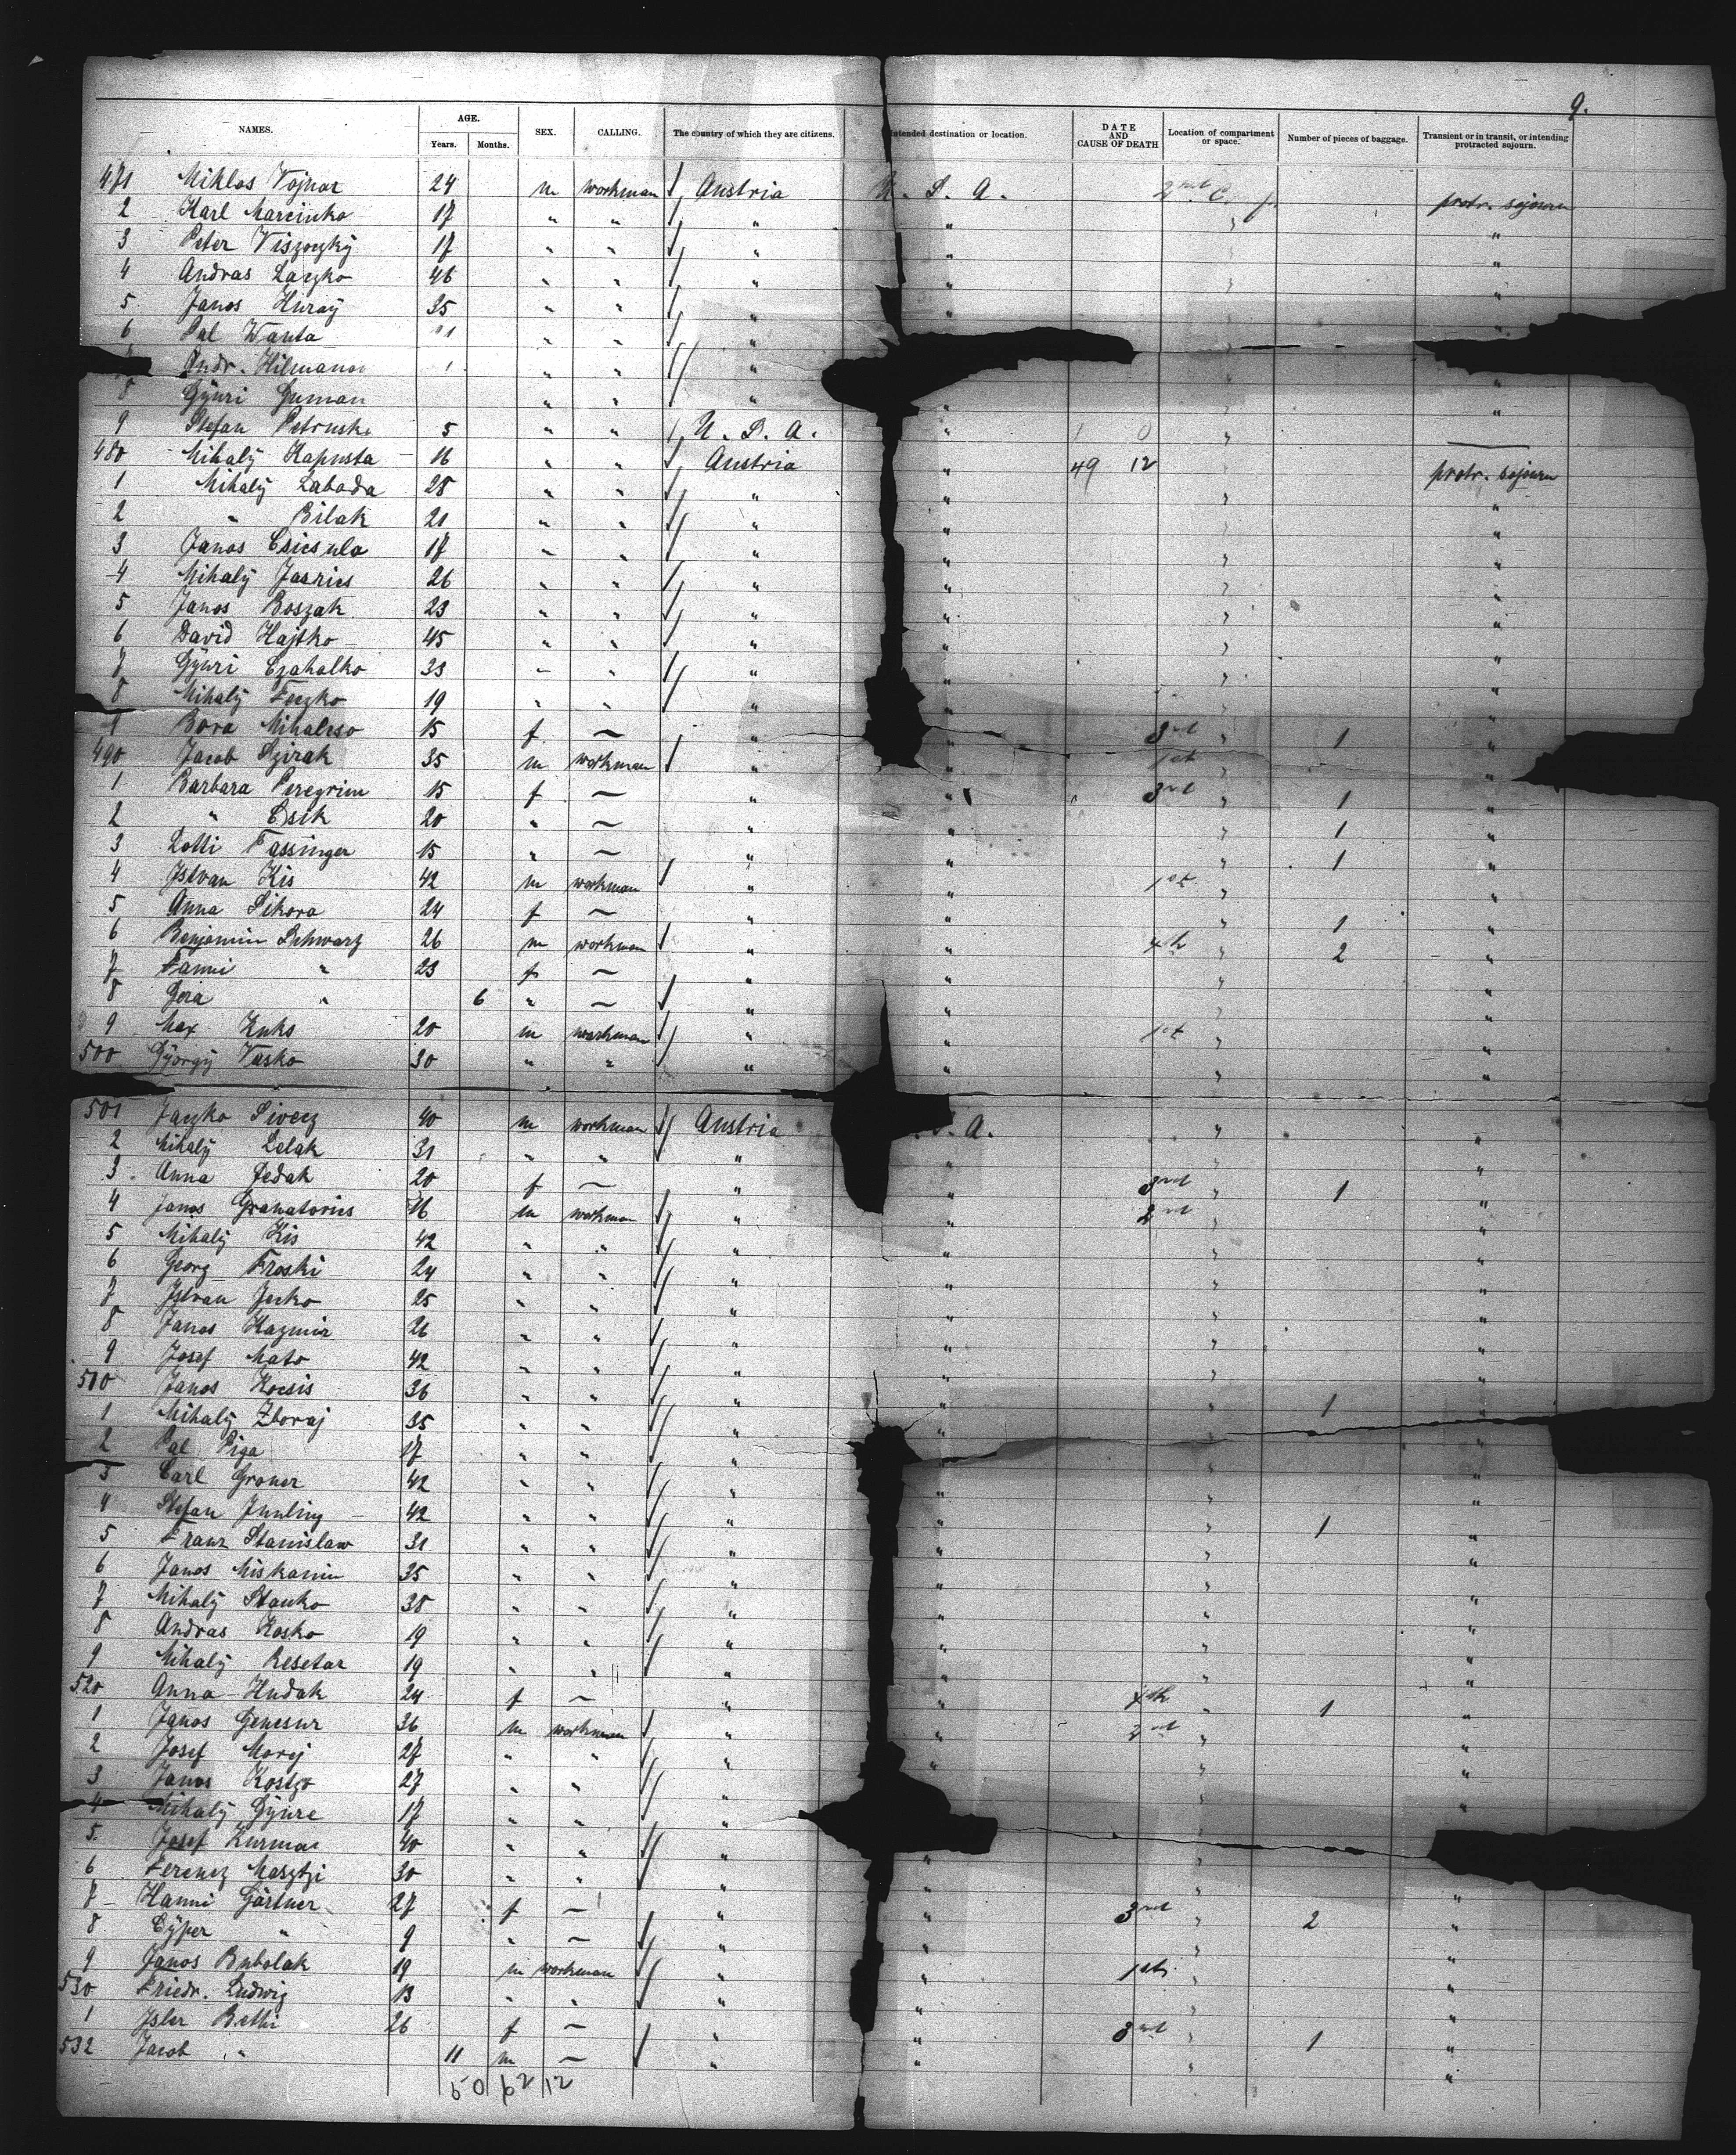 9.
NAMES. AGE. Years. Months. SEX. CALLING. The country of which they are citizens. Intended destination or location. DATE AND CAUSE OF DEATH Location of compartment or space. Number of pieces of baggage. Transient or in transit, or intending protracted sojourn.
471 Miklos Vojnar 24 m workman Austria U. S. A. 2nd C. protr. sojourn
2 Karl Marcinko 17 " " " " " "
3 Peter Viszoczky 17 " " " " " "
4 Andras Laczko 46 " " " " " "
5 Janos Huray 35 " " " " " "
6 Pal Wanta " " " "
Andr. " " " "
8 Gyuri Guman " " " " "
9 Stefan 5 " " U. S. A. " " —
480 Mihaly Kapusta 16 " " Austria " 49 12 protr. sojourn
1 Mihaly Laboda 28 " " " " " "
2 " Bilak 21 " " " " " "
3 Janos Csicsula 17 " " " " " "
4 Mihaly Jasrics 26 " " " " " "
5 Janos Boszak 23 " " " " " "
6 David Hajtko 45 " " " " " "
7 Gyuri Czahalko 33 " " " " " "
8 Mihaly Feczko 19 " " " "
9 Bora Mihalcso 15 f — " " 3rd " 1 "
490 Jacob Szirak 35 m workman " 1st " "
1 Barbara Peregrim 15 f — " " 3rd " 1 "
2 " Csik 20 " — " " " 1 "
3 Lotti Fassinger 15 " — " " " 1 "
4 Istvan Kis 42 m workman " " 1st " "
5 Anna Sikora 24 f — " " " 1 "
6 Benjamin Schwarz 26 m workman " " 4th " 2 "
7 Fanni " 23 f — " " " "
8 " 6 " — " " " "
9 Max Kuks 20 m workman " " 1st " "
500 György Vasko 30 " " " " " "
501 Jaczko Sivecz 40 m workman Austria A. " "
2 Mihaly Lelak 31 " " " " " "
3 Anna Dedak 20 f — " " 3rd " 1 "
4 Janos Granatovics 16 m workman " " 2nd " "
5 Mihaly Kis 42 " " " " " "
6 Georg Froski 24 " " " " " "
7 Istvan Jesko 25 " " " " " "
8 Janos Kazmir 26 " " " " " "
9 Josef Mato 42 " " " " " "
510 Janos Kocsis 36 " " " " " 1 "
1 Mihaly Zboraj 35 " " " " "
2 Pal Piga 17 " " " " "
3 Carl Groner 42 " " " " " "
4 Stefan 42 " " " " " 1 "
5 Franz Stanislaw 31 " " " " " "
6 Janos Miskanin 35 " " " " " "
7 Mihaly Stanko 38 " " " " " "
8 Andras Kosko 19 " " " " " "
9 Mihaly Resetar 19 " " " " " "
520 Anna Hudak 24 f — " " 4th " 1 "
1 Janos 36 m workman " " 2nd " "
2 Josef Morej 27 " " " " " "
3 Janos Kostzo 27 " " " " " "
4 Mihaly Gyure 17 " " " "
5. Josef 40 " " " " "
6 Ferencz Masztzi 30 " " " " " "
7 Hanni Gärtner 27 f — " " 3rd " 2 "
8 " 9 " — " " " "
9 Janos Bubolak 19 m workman " " 1st " "
530 Friedr. Ludwig 13 " " " " " "
1 Isler Bethi 26 f — " " 3rd " 1 "
532 Jacob " 11 m — " " " "
50 62 12